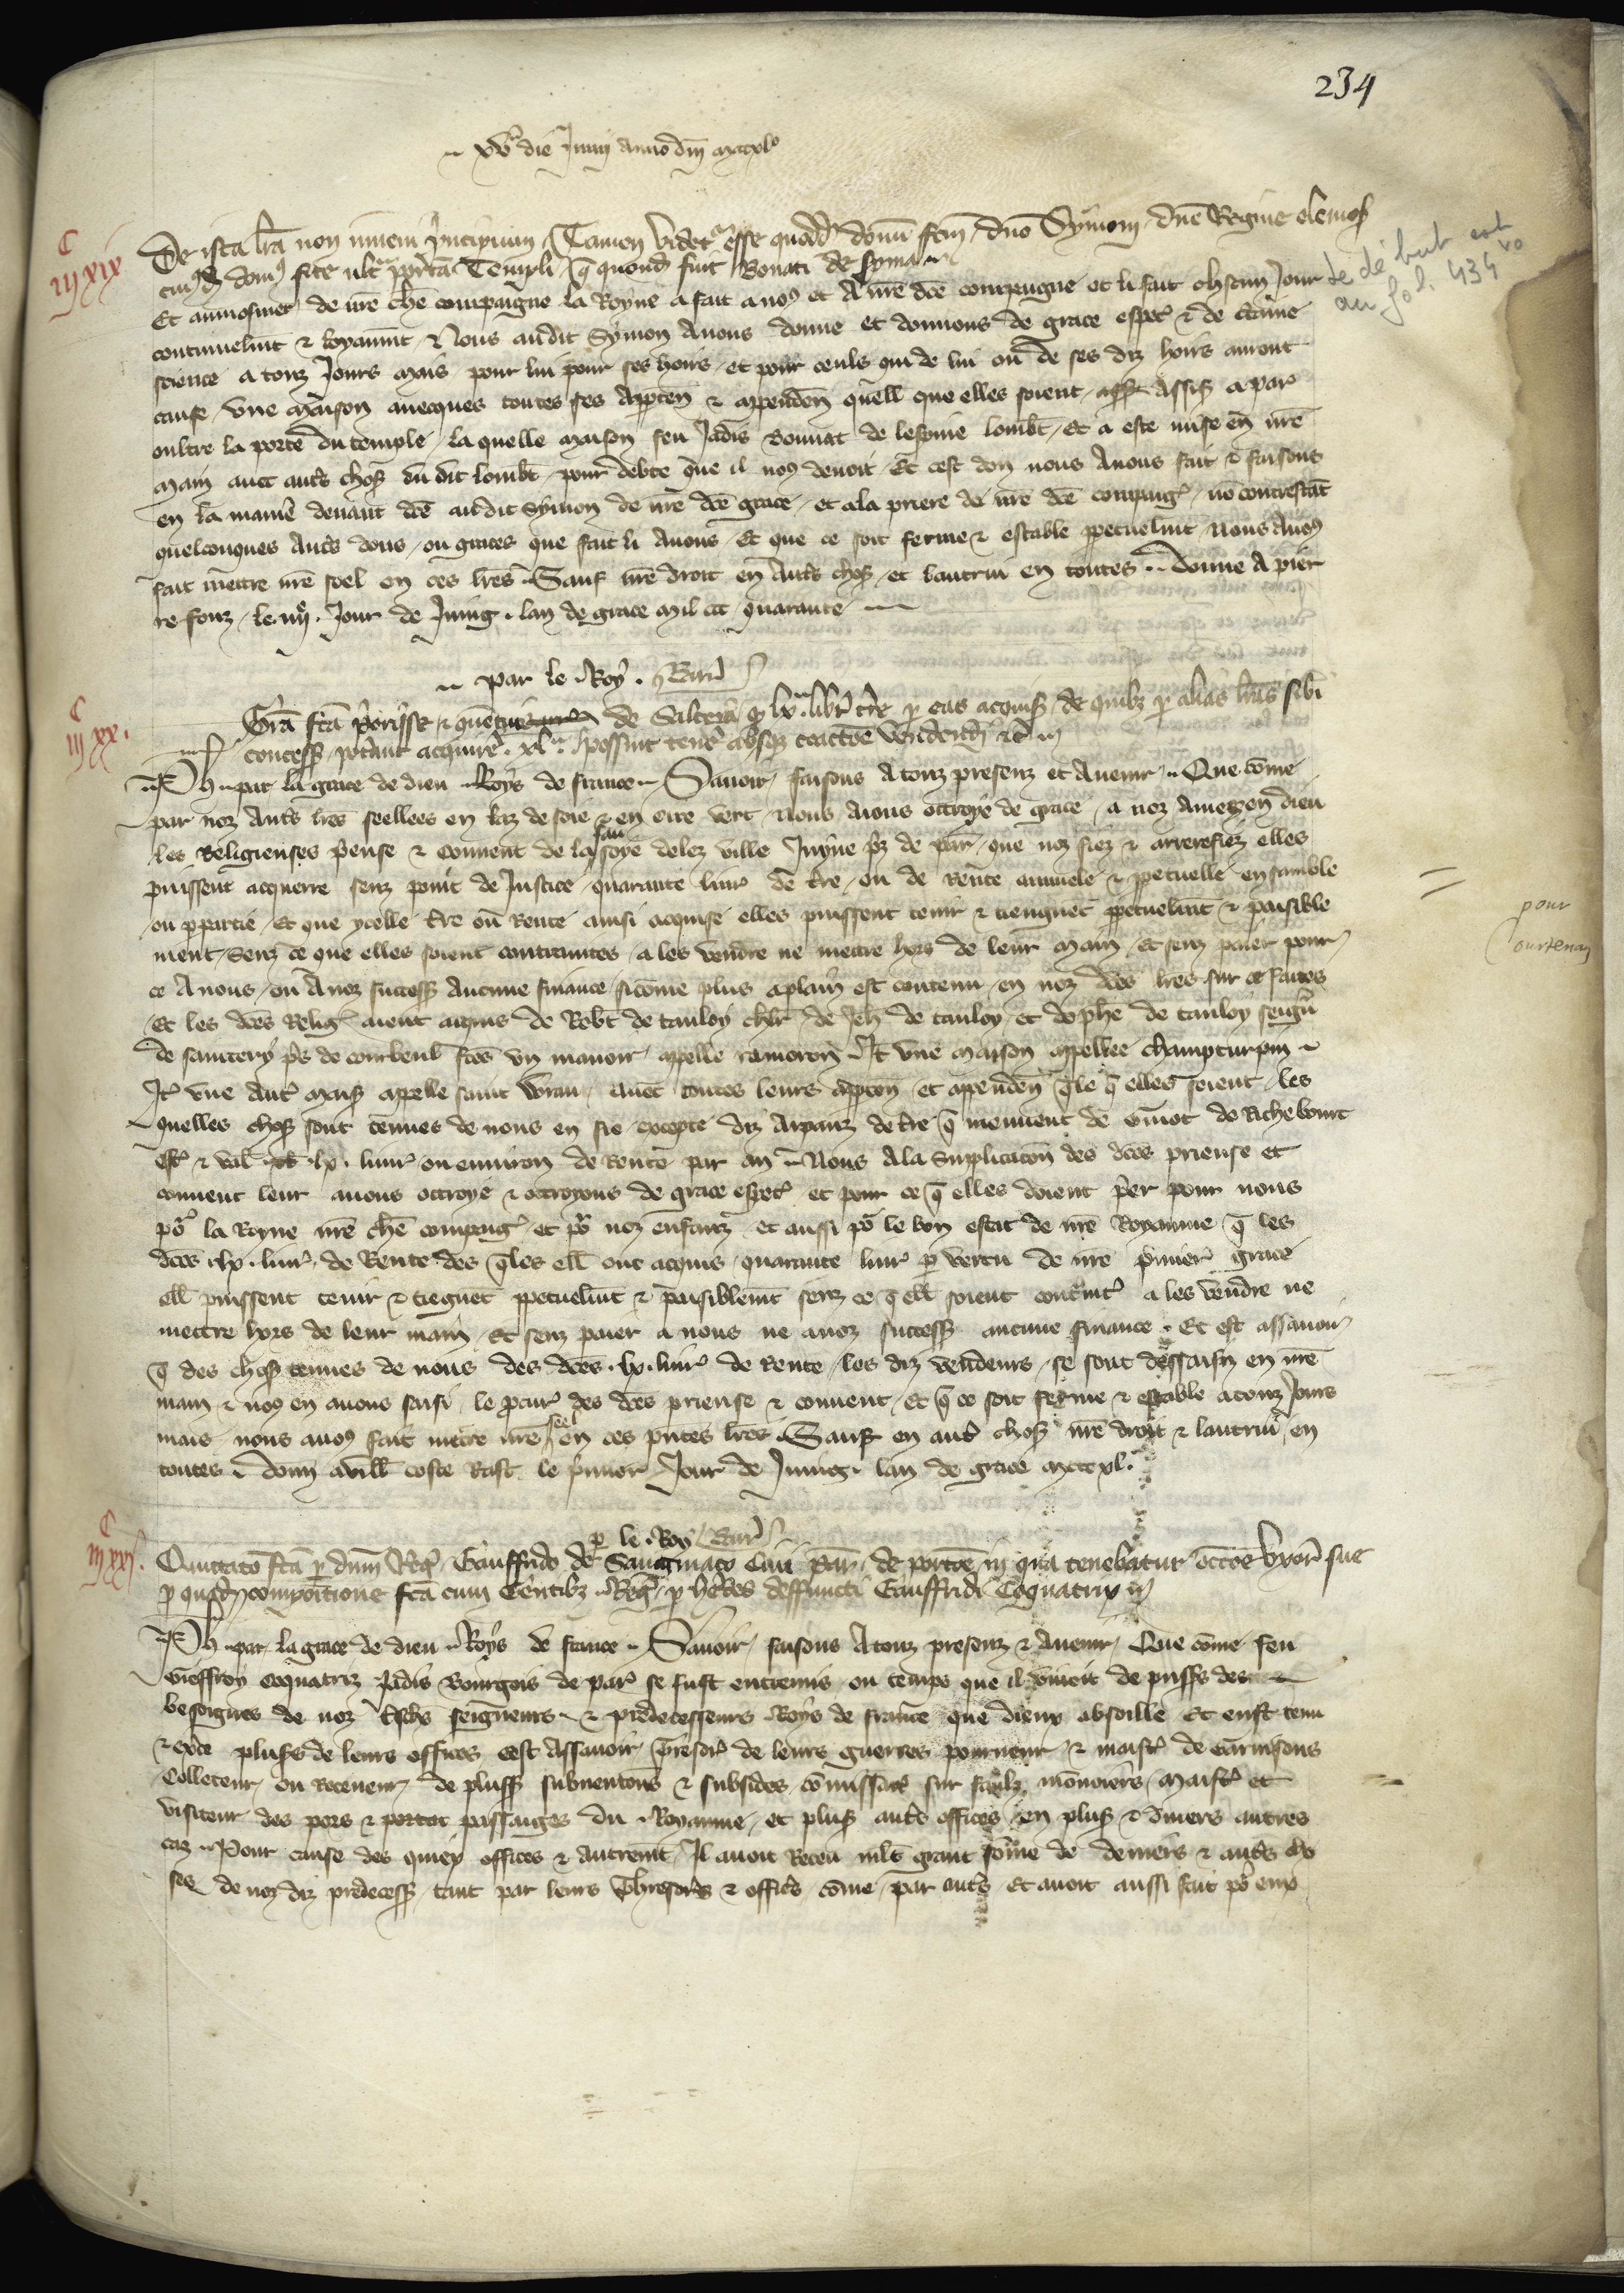 234
xv^a die Junii anno dm̄ mcccxl°
C
iijxix
De ista lr̄a non inveni principium Tamen videtur esse quoddā donū fcm̄ dno Symoni dne Regine elemos
cuiusd domus site ultra portā Templi q̄ quond fuit Bonati de
le début est
au fol. 434 vo
Et aumosnier de nrē chē compaigne la Royne a fait a noꝰ et A nrē dcē compaigne et li fait chascun Jour
continuelmt & loyaumt & Nous audit Symon Avons donne et donnons de grace espec̄ & de c̄taine
science a touz Jours mais pour lui pour ses hoirs et pour ceuls qui de lui ou de ses diz hoirs auront
cause une maison avecques toutes ses appten & appenden quell que elles soient assis a par
oultre la porte du temple la quelle maison feu Jadis Bonnat de lespine lombt Et a este mise en nrē
main avec aut̄s chos̄ du dit lombt pour debte que il noꝰ devoit Et cest don nous Avons fait & faisons
en la manie devant dcē audit Symon de nrē dcē grace et a la priere de nrē dcē compaiḡ nō contrestāt
quelconques Aut̄s dons ou graces que fait li Avons Et que ce soit ferme & estable ppetuelmt Nous Avoꝰ
fait mettre nrē seel en ces lrēs Sauf nrē droit en Aut̄s chos̄ et lautrui en toutes Donne A pier
re fonz le iiij. Jour de Juing. lan de grace mil ccc quarante
par le Roy. Barr̄
C
iijxx.
Grā fcā priorisse & de Salceya q̄ lx. libr̄ tr̄e p eas acquis̄ de quibz p alias lrās sibi
concess̄ potāt acquirē. xl. possint tenē absq̄ coactōe vendendi &c
Ph par la grace de dieu Roys de france Savoir faisons A touz presenz et Avenir Que cōme
par noz Aut̄s lrēs seellees en laz de soie & en cire vert Nous Aions ottroye de grace a noz Amees en dieu
les Religieuses priēuse & Couvent de la saussoye delez ville Juyue prēz de par que noz fiez & arrerefiez elles
puissent acquerre senz point de Justice quarante liur̄ de tr̄e ou de Rente annuele & ppetuelle ensamble
ou p partie Et que ycelle tr̄e ou Rente ainsi acquise elles puissent tenir & tiengnēt ppetuelmt & paisible
ment Senz ce que elles soient contraintes a les vendre ne mettre hors de leur main Et senz paier pour
ce A nous ou A noz success̄ Aucune finance sicōme plus a plain est contenu en noz dcēs lrēs sur ce faites
Et les dcēs Reliḡ aient acquis de Robt de tanloy chlr de Jeh̄ de tanloy et de phē de tanloy seign̄
de saintery prēs de corbeul fcēs un manoir appelle It̄ une maison appellee champturpin
It̄ une Aut̄ mais̄ apelle saint avec toutes leurs appten et apenden q̄le q̄ elles soient les
quelles chos̄ sont tenues de nous en fie excepte diz Arpanz de tr̄e q̄ meuvent de Guiot de Richebourt
est̄ & val lx. liur̄ ou environ de Rente par an Nous A la Supplicacōn des dcēs prieuse et
couvent leur avons ottroye & ottroyons de grace espec̄ et pour ce q̄ elles doient prier pour nous
pō la Royne nrē chē compaiḡ et pō noz enfanz et aussi pō le bon estat de nrē Royaume q̄ les
dcēs lx. liur̄ de Rente des q̄les ell ont acquis quarante liur̄ p vertu de nrē premier̄ grace
ell puissent tenir & tiegnēt ppetuelmt & paisiblemt senz ce q̄ ell soient contraint̄ a les vendre ne
mettre hors de leur main Et senz paier a nous ne a noz success̄ aucune finance Et est assavoir
q̄ des chos̄ tenues de nous des dcēs. lx. liur̄ de Rente les diz vendeurs se sont dessaisiz en nrē
main & noꝰ en avons saisi le pcur̄ des dcēs prieuse & couvent Et q̄ ce soit ferme & estable a touz Jours
mais nous avoꝰ fait mettre nrē seel en ces pntes lrēs Sauf en aut̄ chos̄ nrē droit & lautrui en
toutes donn a vill coste Rast le premier Jour de Juing lan de grace mcccxl.
pour
Courtenay
p le Roy Barr̄
C
iijxxj.
Quittato fcā p dnm Reḡ Gauffrido de Sauginaco Civi Par de portōe in qua tenebatur occōe uxor̄ sue
p quadm compositione fcā cum Gentibz Reḡ p hered̄es deffuncti Gauffridi Coquatrix
Ph par la grace de dieu Roys de france Savoir faisons A touz presenz & Avenir Que cōme feu
Gieffroy Coquatriz Jadis Bourgois de par se fust entremis ou temps que il vivoit de plus̄s des
besoignes de noz tsch̄s seigneurs & predecesseurs Roys de france que dieux absoille Et eust tenu
& exce plus̄s de leurs offices cest Assavoir Tresor̄ de leurs guerres pourveur & maist̄ de Garnisons
Colleteur ou Receveur de pluss̄ subventōns & subsides cōmissar̄ sur faulz mōnoiers Maist̄ et
visiteur des pors & portat passaiges du Royaume et plus̄ aut̄s offices en plus̄ & divers autres
caz Pour cause des quiex offices & autremt Il avoit Receu mlt grant sōme de deniers & aut̄s cho
ses de noz diz predecess̄ tant par leurs Thresoriers & offic̄s cōme par aut̄s Et avoit aussi fait pō eux